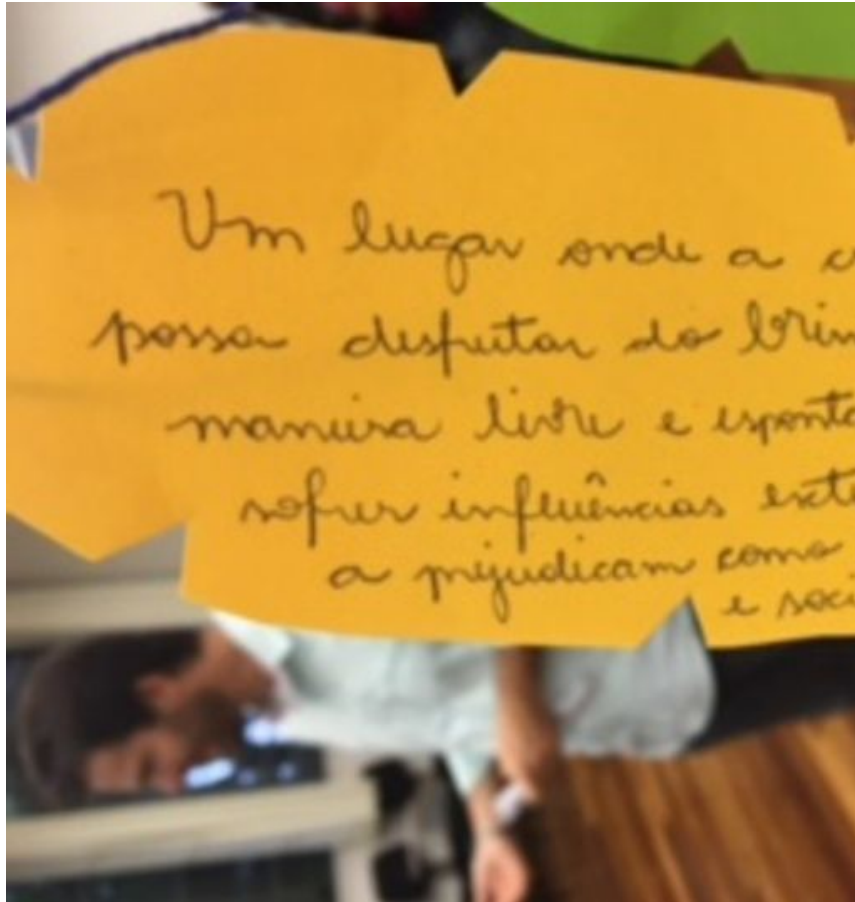 Um lugar onde a c
possa disfrutar do brin
maneira livre e esponta
sofrer influências exte
a prejudicam como
e soci